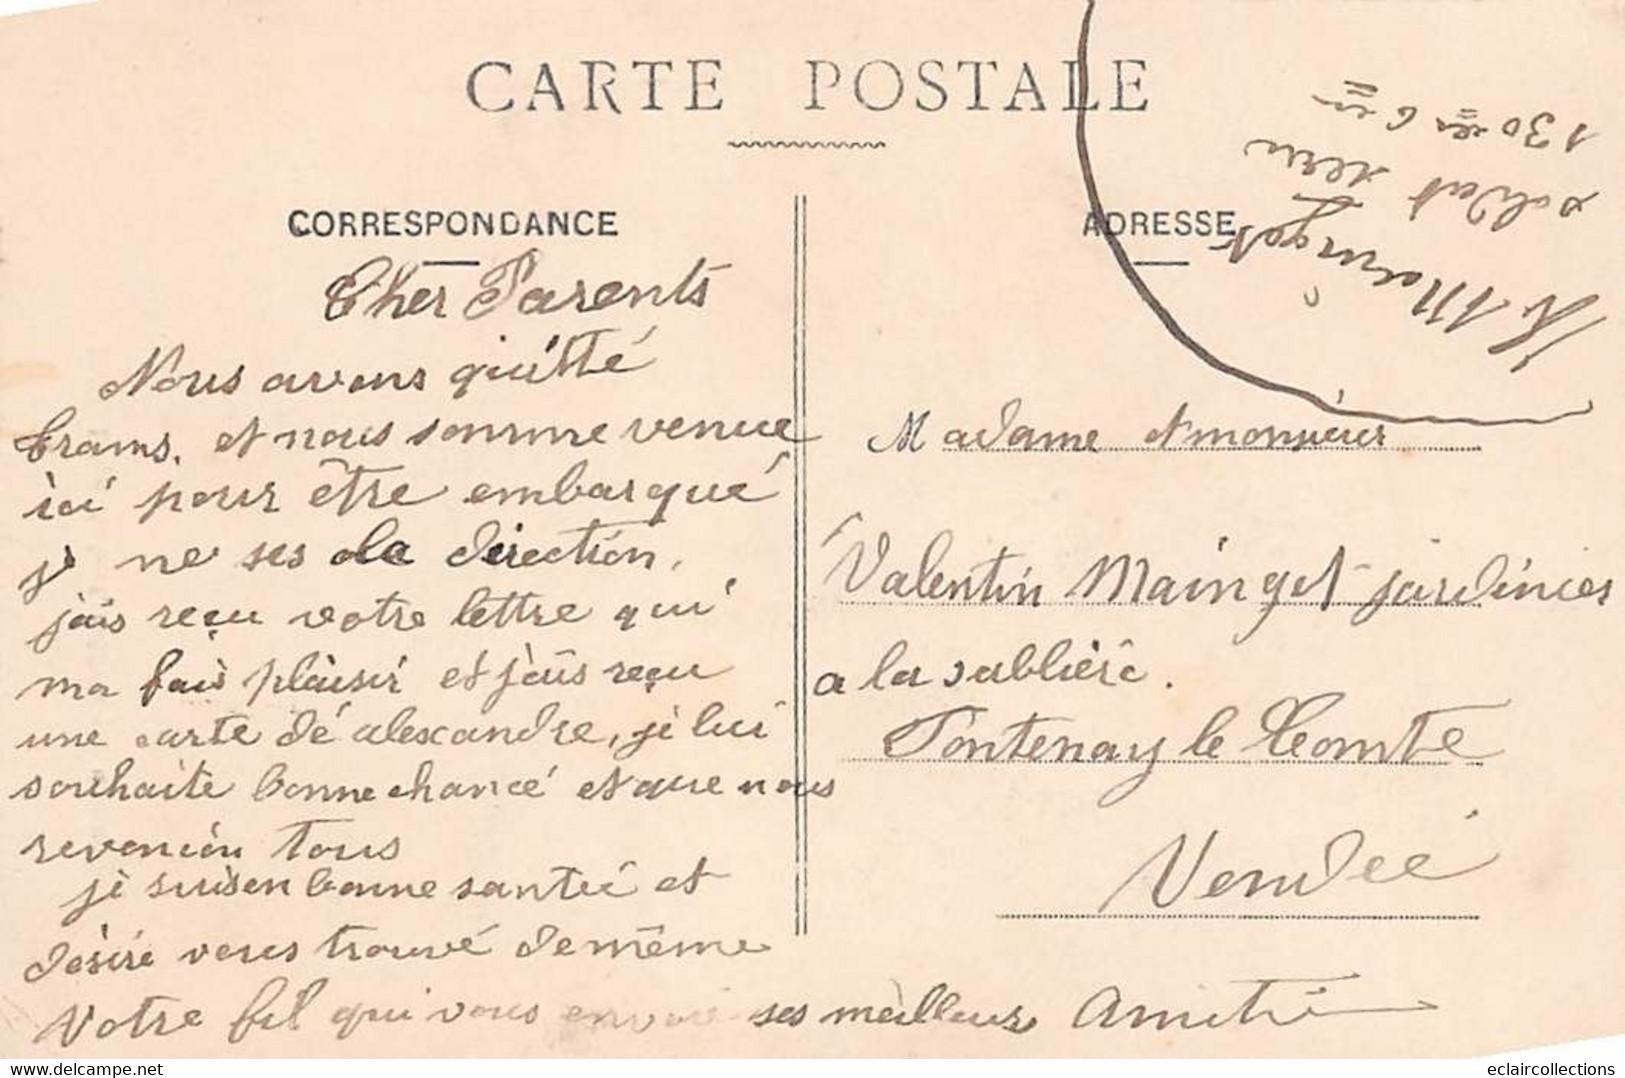 CARTE POSTALE
CORRESPONDANCE
Cher Parents
Nous avons quitté
Crams. et nous somme venue
ici pour être embarqué
je ne ses de la direction,
jais reçu votre lettre qui
ma fais plaisir et jais reçu
une carte dé alexandre, je lui
souhaite bonne chance et que nous
revenion tous
je suisen bonne santé et
désire vous trouvé de même
Votre fil qui vous envoie ses meilleur Amitié
ADRESSE
Mainget
soldat
130
Madame et monsieur
Valentin Mainget jardinier
a la sablière.
Fontenay le Comte
Vendée
delcampe.net
eclaircollections